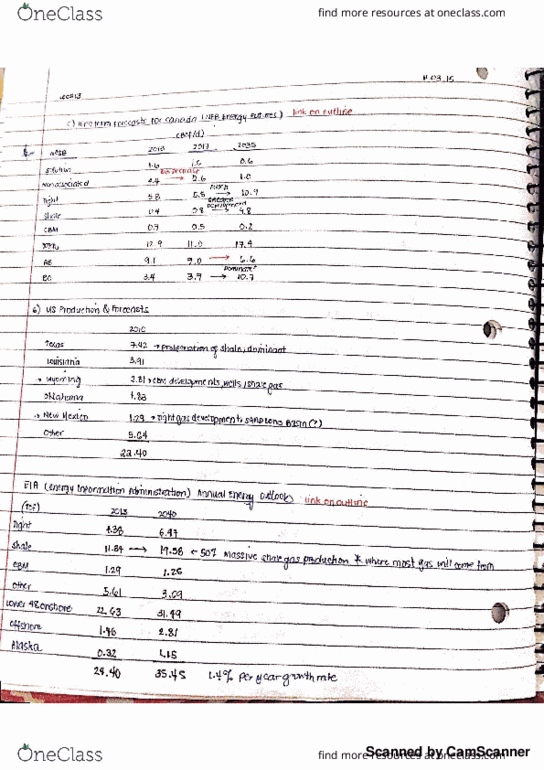 OneClass
find more resources at oneclass.com
11.03.15
c) Forecasts for Canada (NEB Energy Futures) link on outline
(Bcf/d)
2010 2017 2035
Solution 1.6 0.6
Nonassociated → 1.0
Tight 5.8 → 10.9
Shale 0.4 → 4.8
CBM 0.7 0.5 0.2
12.9 11.0 17.4
AB 9.1 → 6.6
dominant
BC 3.4 3.9 → 10.7
6) US Production & Forecasts
2010
Texas 7.42 → proliferation of shale, dominant
Louisiana 3.91
→ Wyoming developments, wells / shale gas
Oklahoma
→ New Mexico 1.29 → tight gas developments Basin (?)
Other 5.64
22.40
EIA (Energy Information Administration) Annual Energy Outlook link on outline
(Tcf)
2013 2040
Tight 4.38 6.97
Shale → 19.58 ← 50% massive shale gas production * where most gas will come from
CBM 1.29 1.25
Other 5.61 3.09
Lower 48 onshore 22.63 31.49
Offshore 1.46 2.81
Alaska 0.32 1.15
24.40 35.45 1.4% per year growth rate
OneClass
find more resources at oneclass.com
Scanned by CamScanner